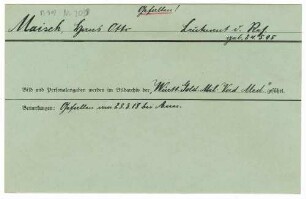 Gefallen!
Maisch, Hans Otto Leutnant d. Res
geb. 24.5.95
Bild und Personalangaben werden im Bildarchiv der "Württ. Gold. Mil. Verd. Med." geführt.
Bemerkungen: Gefallen am 23.3.18 bei